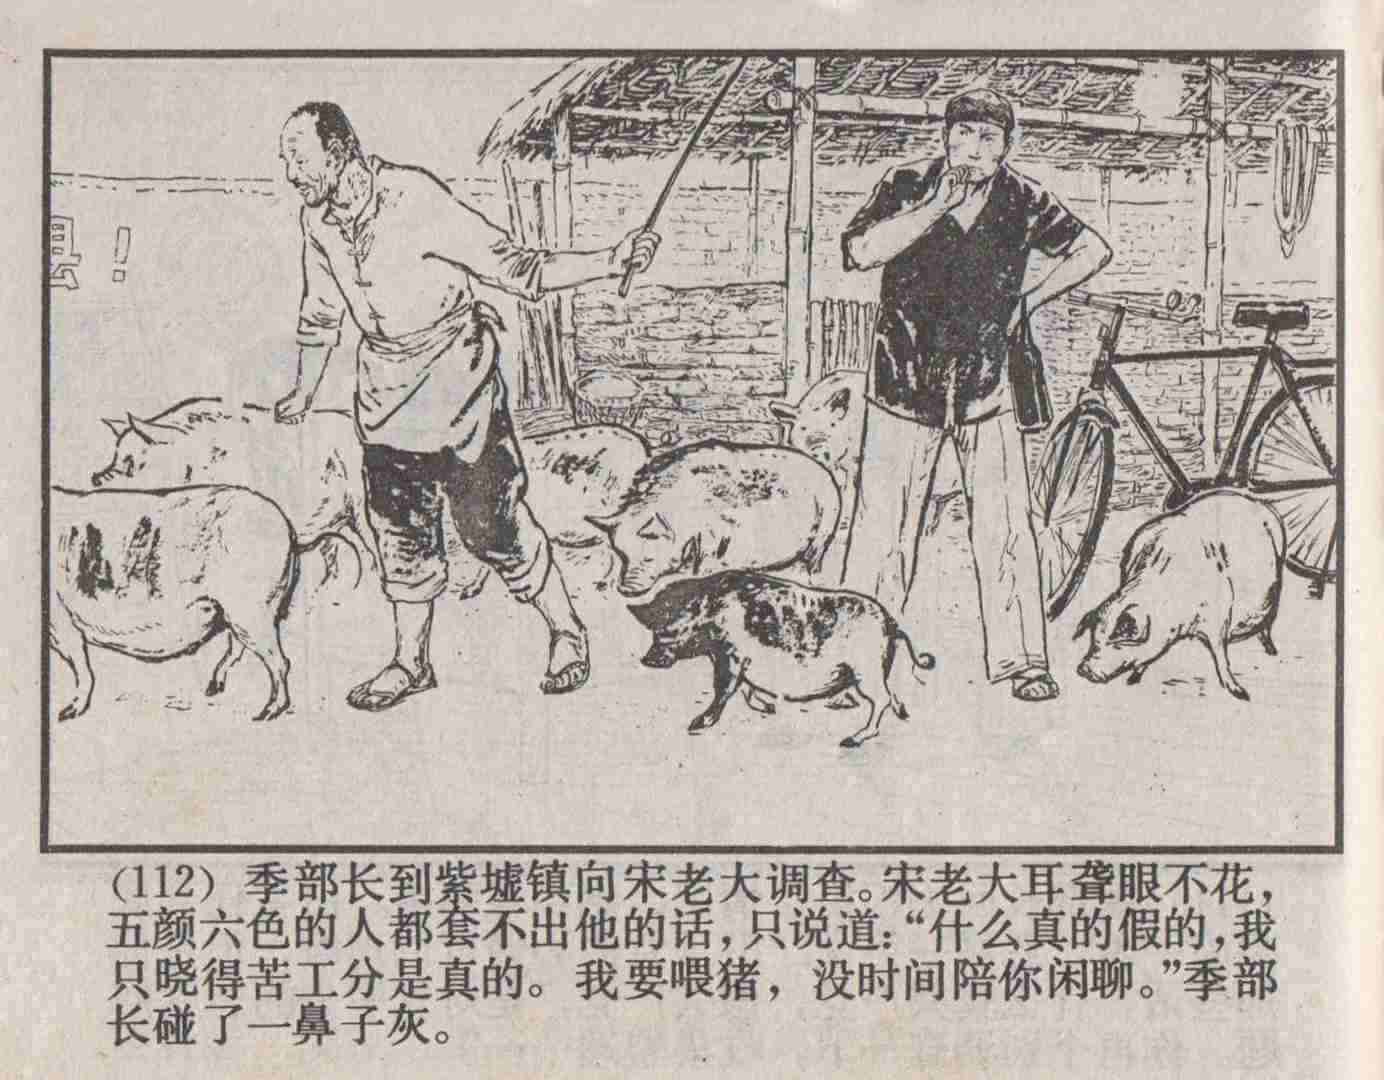 ！
(112) 季部长到紫墟镇向宋老大调查。宋老大耳聋眼不花，
五颜六色的人都套不出他的话，只说道：“什么真的假的，我
只晓得苦工分是真的。我要喂猪，没时间陪你闲聊。”季部
长碰了一鼻子灰。